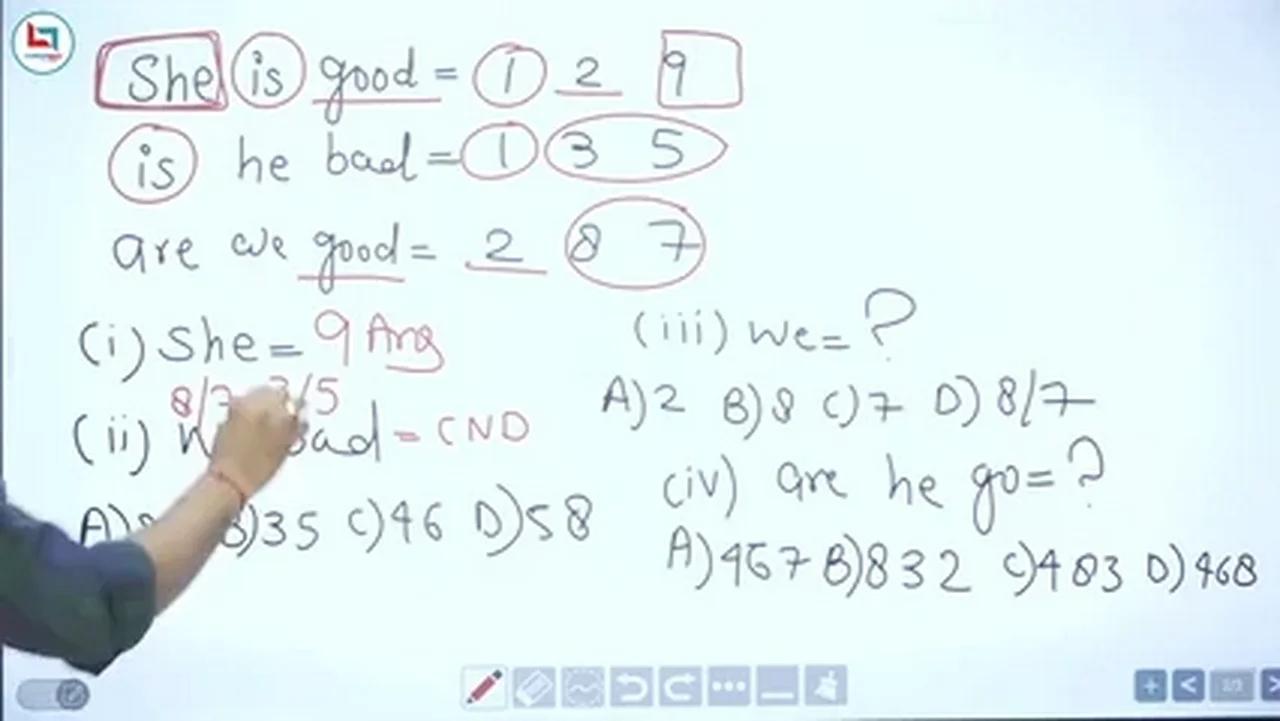 She is good = 1 2 9
is he bad = 1 3 5
are we good = 2 8 7
(i) She = 9 Ans
8/7 3/5
(ii) bad = CND
35 C) 46 D) 58
(iii) we = ?
A) 2 B) 8 C) 7 D) 8/7
(iv) are he go = ?
A) 467 B) 832 C) 483 D) 468